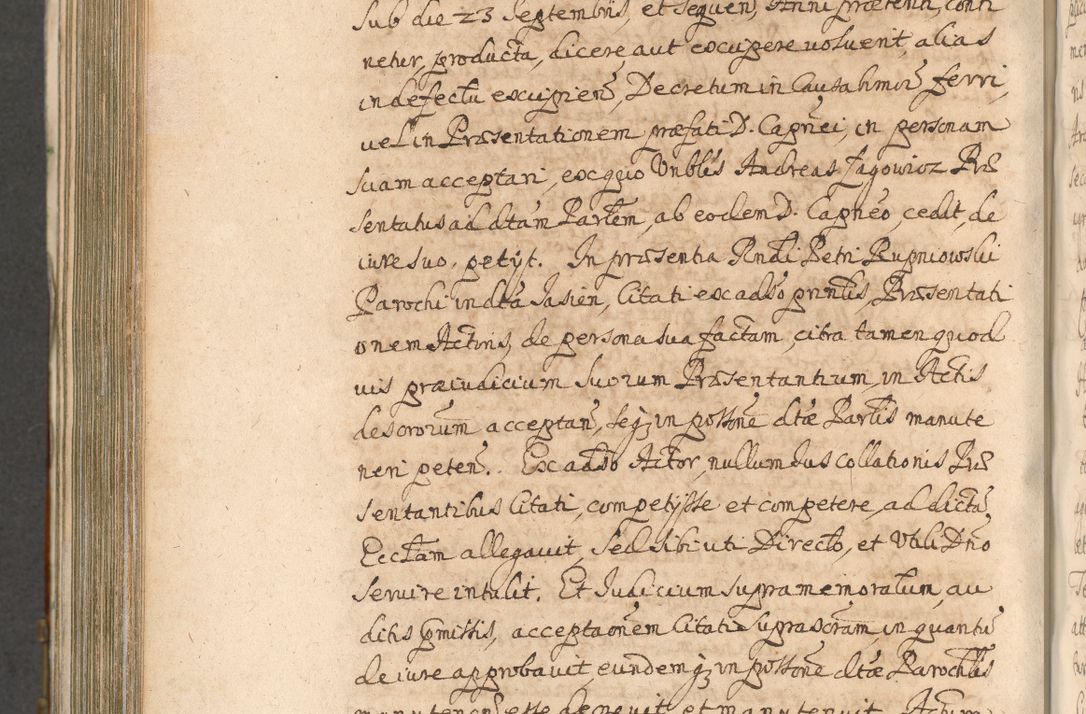 Sub die 23 Septembris, et sequen, Anni præteriti, conti
netur, producta, dicere aut excipere voluerit, alias
in defectu excipien, Decretum in Causa hmõi ferri,
vel in Præsentationem præfati D. Capnei, in personam
suam acceptari, ex quo Vnblis Andreas Jagowicz Præ
sentatus ad dtam Partem, ab eodem D. Capneo, cedit, de
iure suo, petÿt. In præsentia Rndi Petri Rupniowski
Parochi in dta Jasien, Citati ex adso prntis, Præsentati
onem Actoris, de persona sua factam, citra tamen quod
vis præiudicium suorum Præsentantium, in Actis
descrorum acceptan, seqz in possone dtæ Partis manute
neri peten. Ex adso Actor, nullum Jus collationis Præ
sentantibus Citati, competÿsse et competere, ad dicta
Ecclam allegavit, sed sibi uti Directo, et Vtili Dno
servire intulit. Et Judicium supra memoratum, au
ditis pmissis, acceptaonem Citati suprascram in quantu
de iure approbavit eundemqz in possone dtæ Parochis
manutenen esse decrevit et manutenuit. Actum